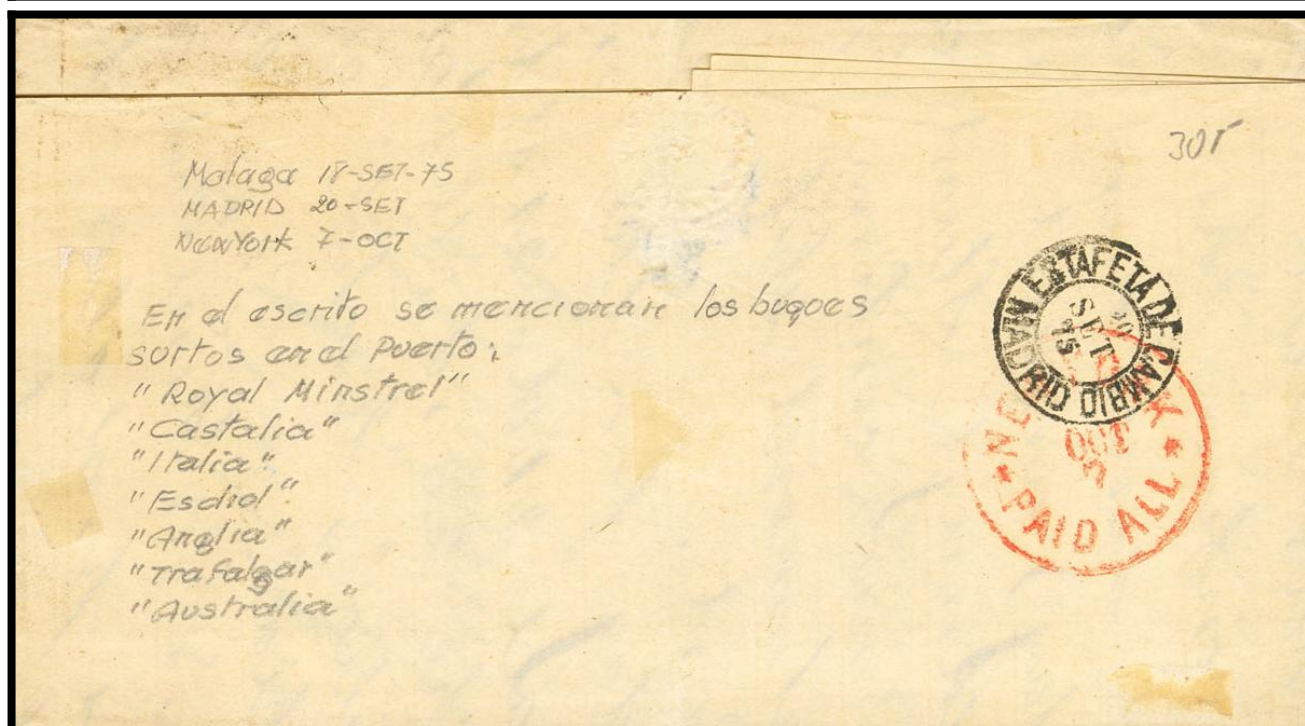 Malaga 18-SET-75
MADRID 20-SET
NewYork 7-OCT
En el escrito se mencionan los buques
surtos en el Puerto:
"Royal Minstrel"
"Castalia"
"Italia"
"Anglia"
"Trafalgar"
"Australia"
ESTAFETA DE CAMBIO MADRID
20
SET
75
OCT
7
PAID ALL